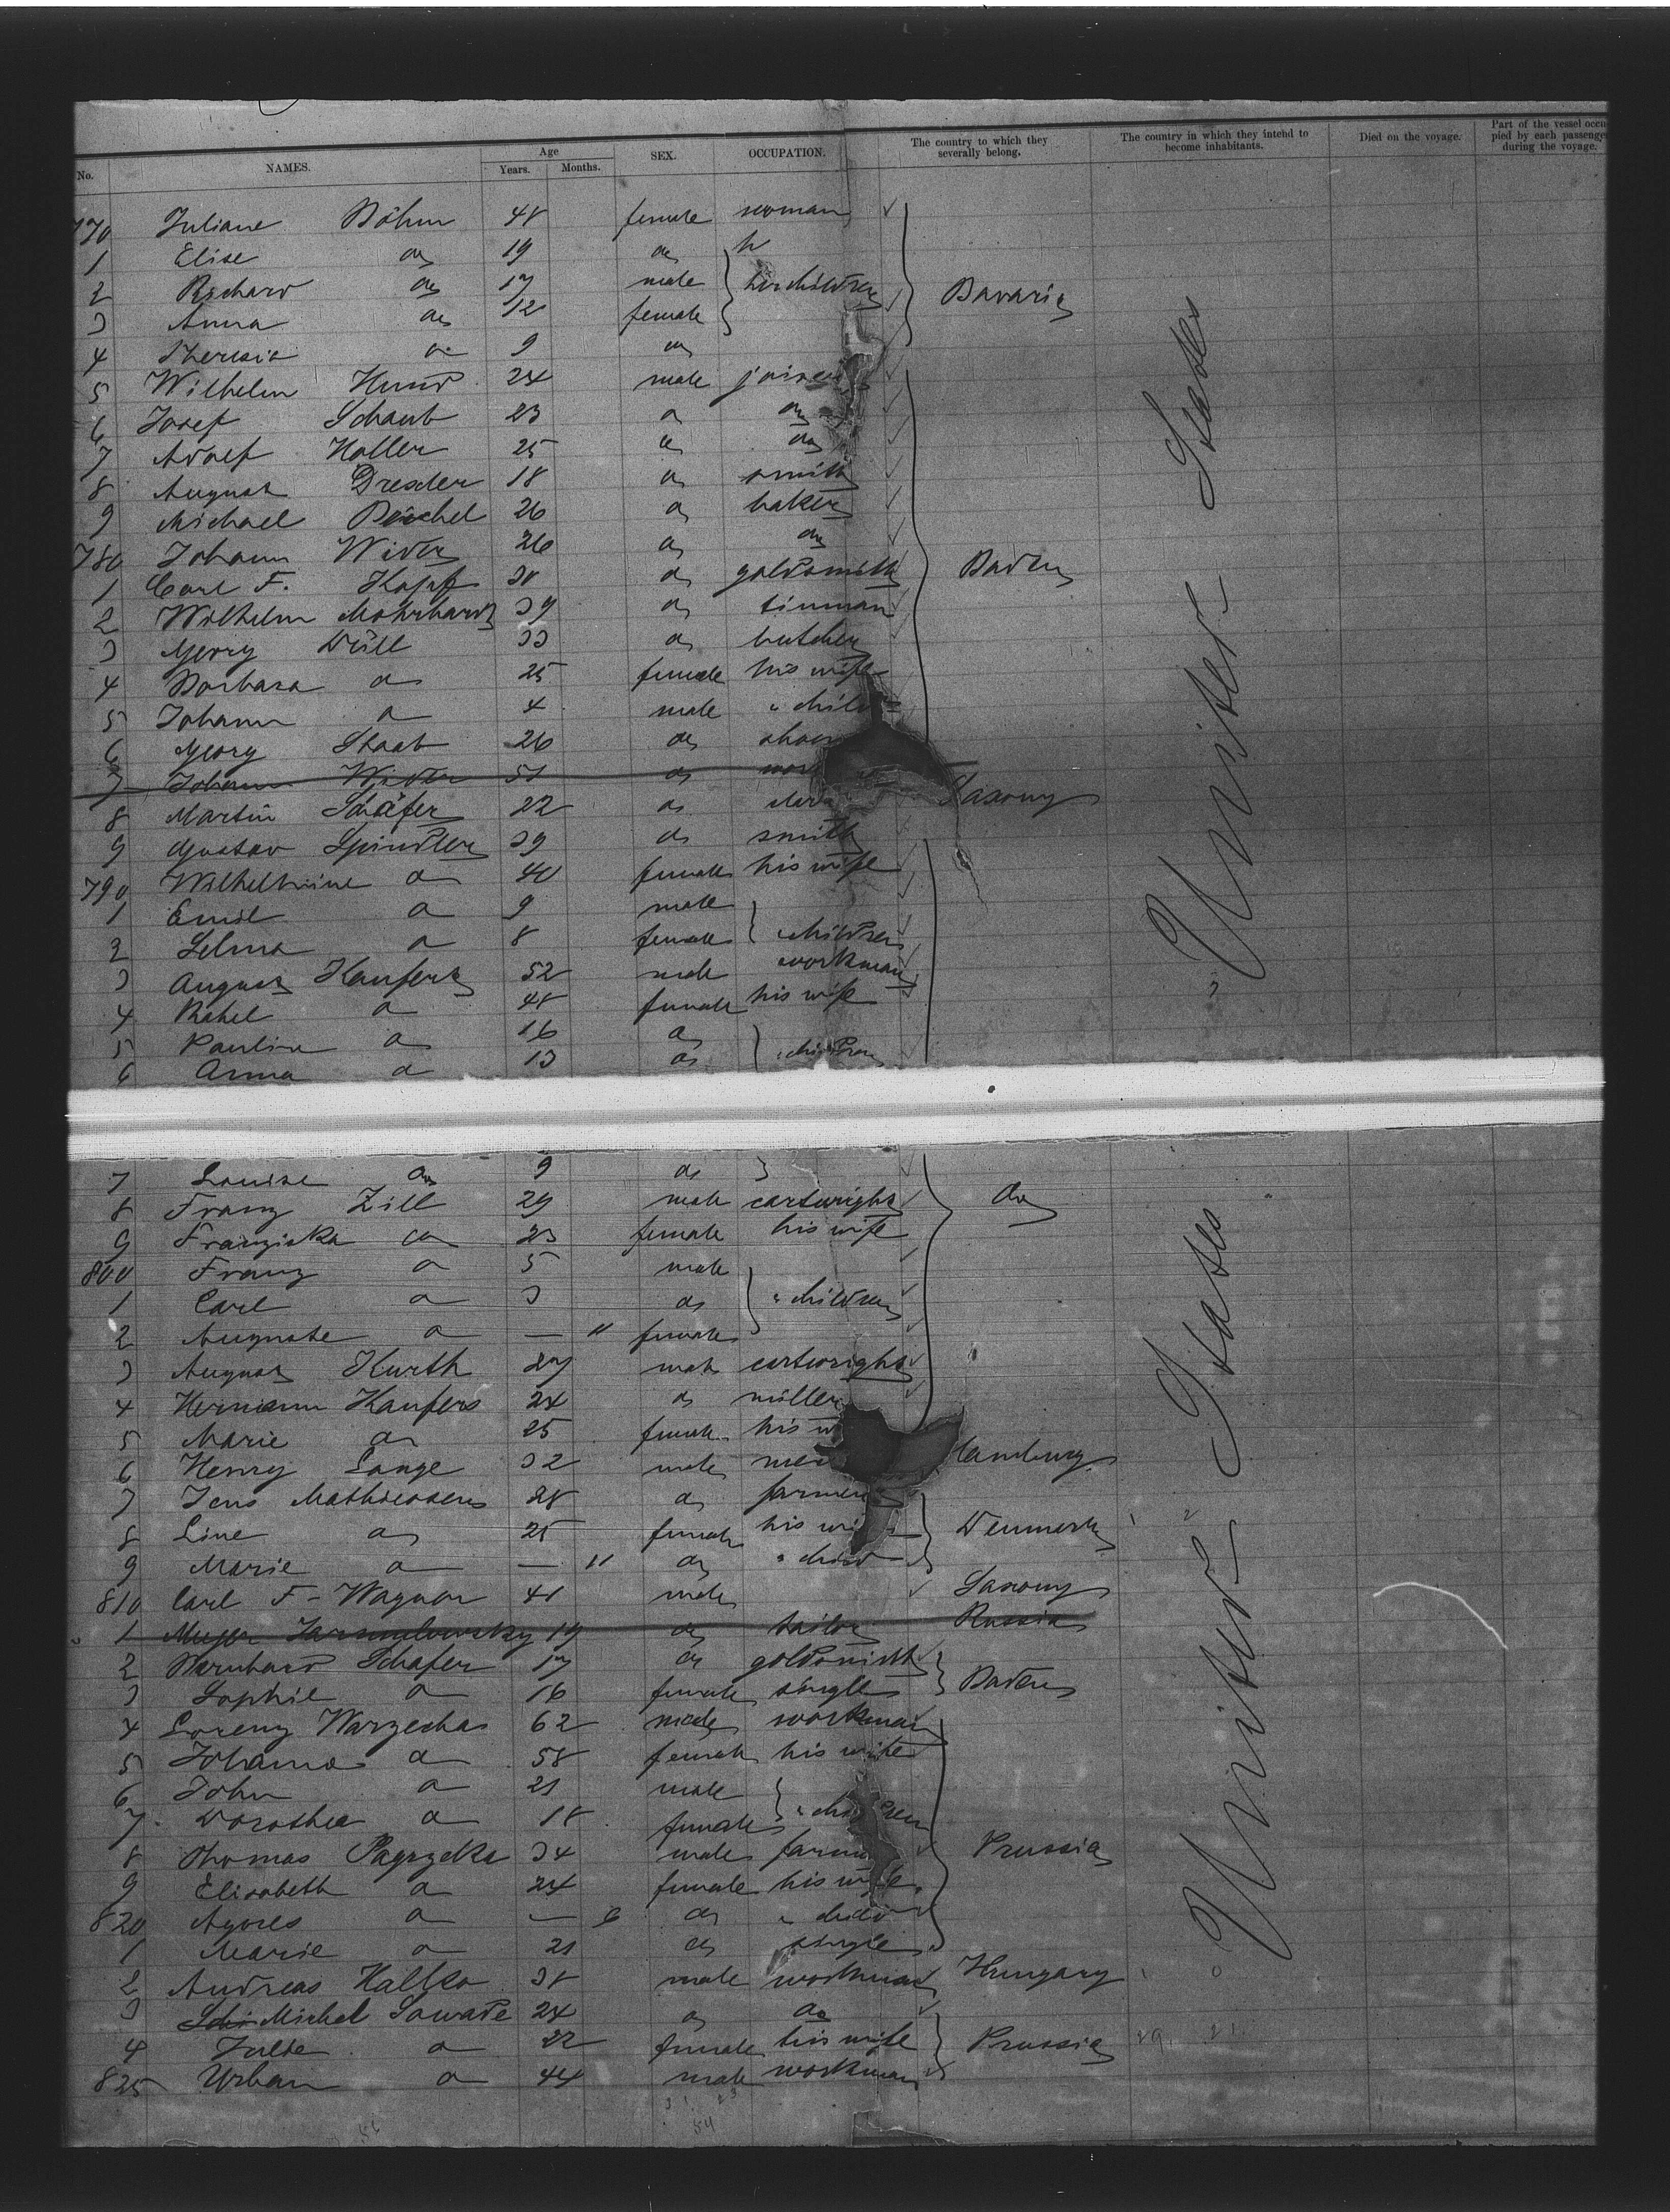 No. NAMES. Age Years. Months. SEX. OCCUPATION. The country to which they severally belong. The country in which they intend to become inhabitants. Died on the voyage. Part of the vessel occupied by each passenger during the voyage.
770 Juliane Böhm 48 female woman
1 Elise do 19 do h
2 Richard do 17 male her children Bavaria
3 Anna do 12 female
4 Theresia do 9 do
5 Wilhelm Hund 24 male joiner
6 Josef Schaub 23 do do
7 Adolf Haller 25 do do
8 August Drexler 18 do smith
9 Michael 26 do baker
780 Johann Wider 26 do do
1 Carl F. Kopf 38 do goldsmith Baden
2 Wilhelm Mohrhardt 39 do tinman
3 Georg Düll 33 do butcher
4 Barbara do 25 female his wife
5 Johann do 4 male " child
6 Georg Staab 26 do
7 Johann Wider 51 do
8 Martin Schäfer 22 do Saxony
9 Gustav Spindler 39 do smith
790 Wilhelmine do 40 female his wife
1 Emil do 9 male
2 Selma do 8 female " children
3 August Kaufers 52 male workman
4 Rahel do 48 female his wife
5 Pauline do 16 do
6 Anna do 13 do " children
United States
7 Louise do 9 do
8 Franz Zill 29 male cartwright do
9 Franziska do 23 female his wife
800 Franz do 5 male
1 Carl do 3 do " children
2 Auguste do — 11 female
3 August Kurth 27 male cartwright
4 Hermann Kaufers 24 do miller
5 Marie do 25 female his
6 Henry Lange 32 male Hamburg
7 Jens Mathiessen 28 do farmer
8 Line do 25 female his wife Denmark
9 Marie do — 11 do " child
810 Carl F. Wagner 41 male Saxony
1 Meyer Jarmulowsky 19 do tailor Russia
2 Bernhard Schafer 17 do goldsmith Baden
3 Sophie do 16 female single
4 Lorenz Warzecha 62 male workman
5 Johanna do 58 female his wife
6 John do 21 male
7 Dorothea do 18 female " children
8 Thomas 34 male farmer Prussia
9 Elisabeth do 24 female his wife
820 Agnes do — 6 do " child
1 Marie do 21 do single
2 Andreas Halko 38 male workman Hungary
3 Michel Sowade 24 do do
4 Julie do 22 female his wife Prussia
825 Urban do 44 male workman
United States